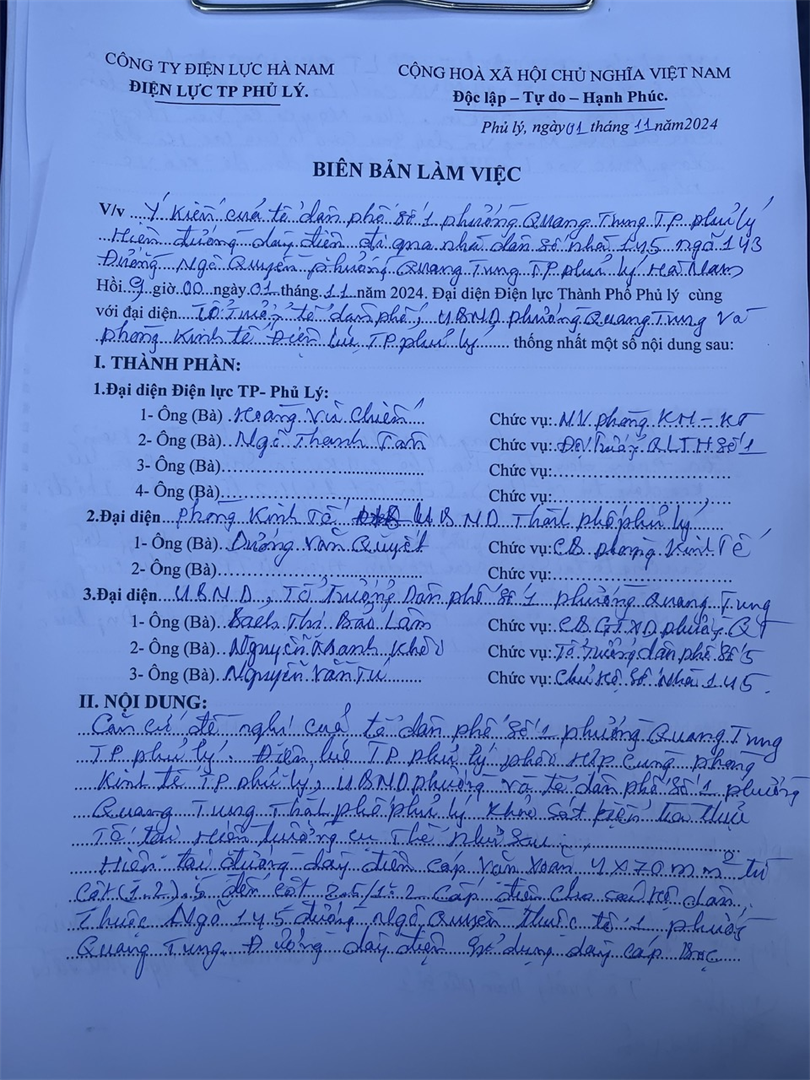 CÔNG TY ĐIỆN LỰC HÀ NAM
ĐIỆN LỰC TP PHỦ LÝ.
CỘNG HOÀ XÃ HỘI CHỦ NGHĨA VIỆT NAM
Độc lập – Tự do – Hạnh Phúc.
Phủ lý, ngày 01 tháng 11 năm 2024
BIÊN BẢN LÀM VIỆC
V/v Ý Kiến của tổ dân phố số 1 phường Quang Trung TP phủ lý
Hiện đường dây điện đi qua nhà dân số nhà 145 ngõ 143
Đường Ngô Quyền phường Quang Trung TP phủ lý Hà Nam
Hồi 9 giờ 00 ngày 01 tháng 11 năm 2024. Đại diện Điện lực Thành Phố Phủ lý cùng
với đại diện Tổ Trưởng tổ dân phố, UBND phường Quang Trung và
phòng Kinh tế Điện lực TP phủ lý thống nhất một số nội dung sau:
I. THÀNH PHẦN:
1.Đại diện Điện lực TP- Phủ Lý:
1- Ông (Bà) Hoàng Vũ Chiến Chức vụ: NV phòng KH-KT
2- Ông (Bà) Ngô Thanh Chức vụ: Đội trưởng QLTH số 1
3- Ông (Bà) Chức vụ:
4- Ông (Bà) Chức vụ:
2.Đại diện phòng Kinh Tế UBND Thành phố phủ lý
1- Ông (Bà) Dương Văn Quyết Chức vụ: CB phòng Kinh Tế
2- Ông (Bà) Chức vụ:
3.Đại diện UBND, Tổ Trưởng Dân phố số 1 phường Quang Trung
1- Ông (Bà) Bạch Thị Bảo Lâm Chức vụ: CB GTXD phường QT
2- Ông (Bà) Nguyễn Khanh Chức vụ: Tổ trưởng dân phố số 5
3- Ông (Bà) Nguyễn Văn Tú Chức vụ: Chủ hộ số nhà 145.
II. NỘI DUNG:
Căn cứ đề nghị của tổ dân phố số 1 phường Quang Trung
TP phủ lý. Điện lực TP phủ lý phối hợp cùng phòng
Kinh tế TP phủ lý, UBND phường và tổ dân phố số 1 phường
Quang Trung Thành phố phủ lý khảo sát kiểm tra thực
Tế tại hiện trường cụ thể như sau:
Hiện tại đường dây điện cáp vặn xoắn 4x70mm² từ
cột (1.2).5 đến cột 2.5/1.2 cấp điện cho các hộ dân
Thuộc Ngõ 145 đường Ngô Quyền thuộc tổ 1 phường
Quang Trung. Đường dây điện sử dụng dây cáp bọc